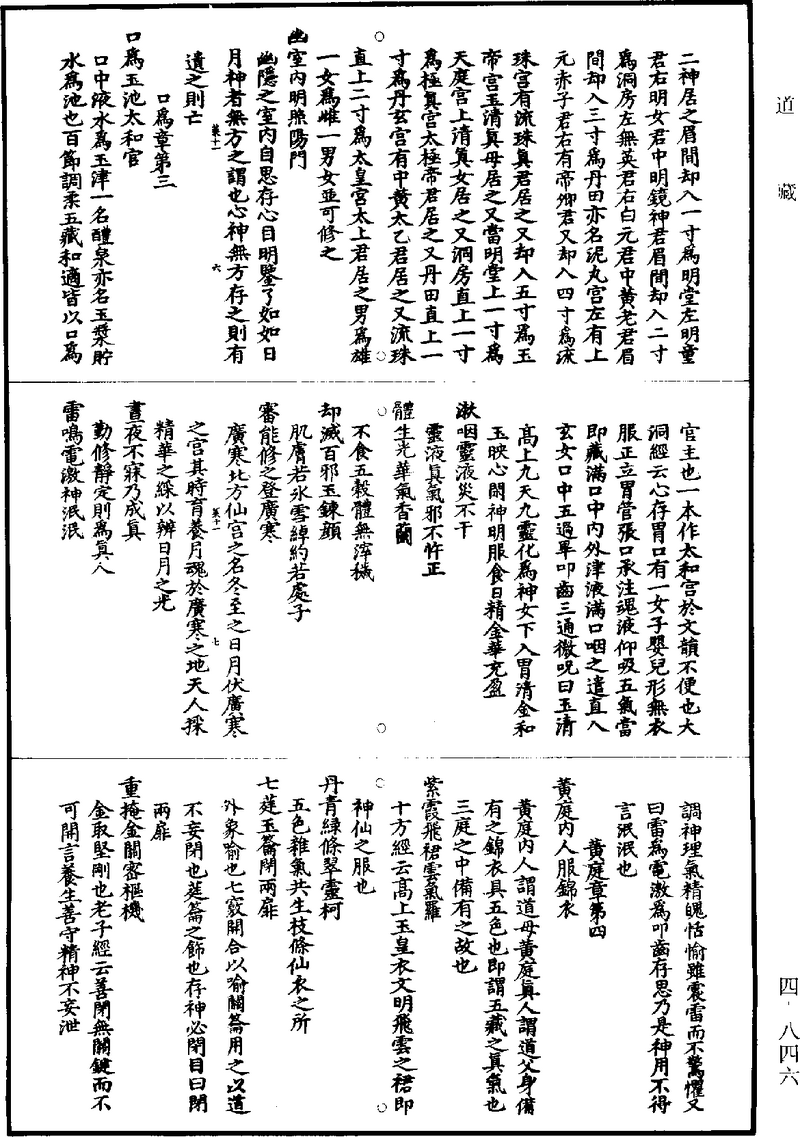 道藏
二神居之眉間却入一寸爲明堂左明童
君右明女君中明鏡神君眉間却入二寸
爲洞房左無英君右白元君中黄老君眉
間却入三寸爲丹田亦名泥丸宫左有上
元赤子君右有帝卿君又却入四寸爲流
珠宫有流珠真君居之又却入五寸爲玉
帝宫玉清真母居之又當明堂上一寸爲
天庭宫上清真女居之又洞房直上一寸
爲極真宫太極帝君居之又丹田直上一
寸爲丹玄宫有中黄太乙君居之又流珠
直上二寸爲太皇宫太上君居之男爲雄
一女爲雌一男女並可修之
幽室内明照陽門
幽隱之室内自思存心目明鑒了如如日
月神者無方之謂也心神無方存之則有
菜十一 六
遺之則亡
口爲章第三
口爲玉池太和官
口中液水爲玉津一名醴泉亦名玉漿貯
水爲池也百節調柔五藏和適皆以口爲
官主也一本作太和宫於文韻不便也大
洞經云心存胃口有一女子嬰兒形無衣
服正立胃管張口承注魂液仰吸五氣當
即藏滿口中内外津液滿口咽之遣直入
玄女口中五過畢叩齒三通微呪曰玉清
高上九天九靈化爲神女下入胃清金和
玉映心閉神明服食日精金華充盈
漱咽靈液災不干
靈液真氣邪不忤正
體生光華氣香蘭
不食五穀體無滓穢
却滅百邪玉鍊顔
肌膚若氷雪綽約若處子
審能修之登廣寒
廣寒北方仙宫之名冬至之日月伏廣寒
菜十一 七
之宫其時育養月魂於廣寒之地天人採
精華之綵以辨日月之光
晝夜不寐乃成真
勤修靜定則爲真人
雷鳴電激神泯泯
調神理氣精魄恬愉雖震雷而不驚懼又
曰雷爲電激爲叩齒存思乃是神用不得
言泯泯也
黄庭章第四
黄庭内人服錦衣
黄庭内人謂道母黄庭真人謂道父身備
有之錦衣具五色也即謂五藏之真氣也
三庭之中備有之故也
紫霞飛裙雲氣羅
十方經云高上玉皇衣文明飛雲之裙即
神仙之服也
丹青緑條翠靈柯
五色雜氣共生枝條仙衣之所
七蕤玉籥閉兩扉
外象喻也七竅開合以喻關籥用之以道
不妄閉也蕤籥之飾也存神必閉目曰閉
兩扉
重掩金關密樞機
金取堅剛也老子經云善閉無關鍵而不
可開言養生善守精神不妄泄
四·八四六